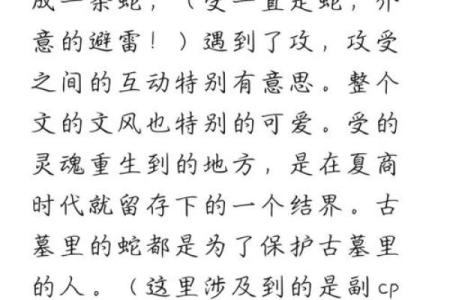 成一条蛇，（受一直是蛇，介
意的避雷！）遇到了攻，攻受
之间的互动特别有意思。整个
文的文风也特别的可爱。受的
灵魂重生到的地方，是在夏商
时代就留存下的一个结界。古
墓里的蛇都是为了保护古墓里
的人。（这里涉及到的是副cp